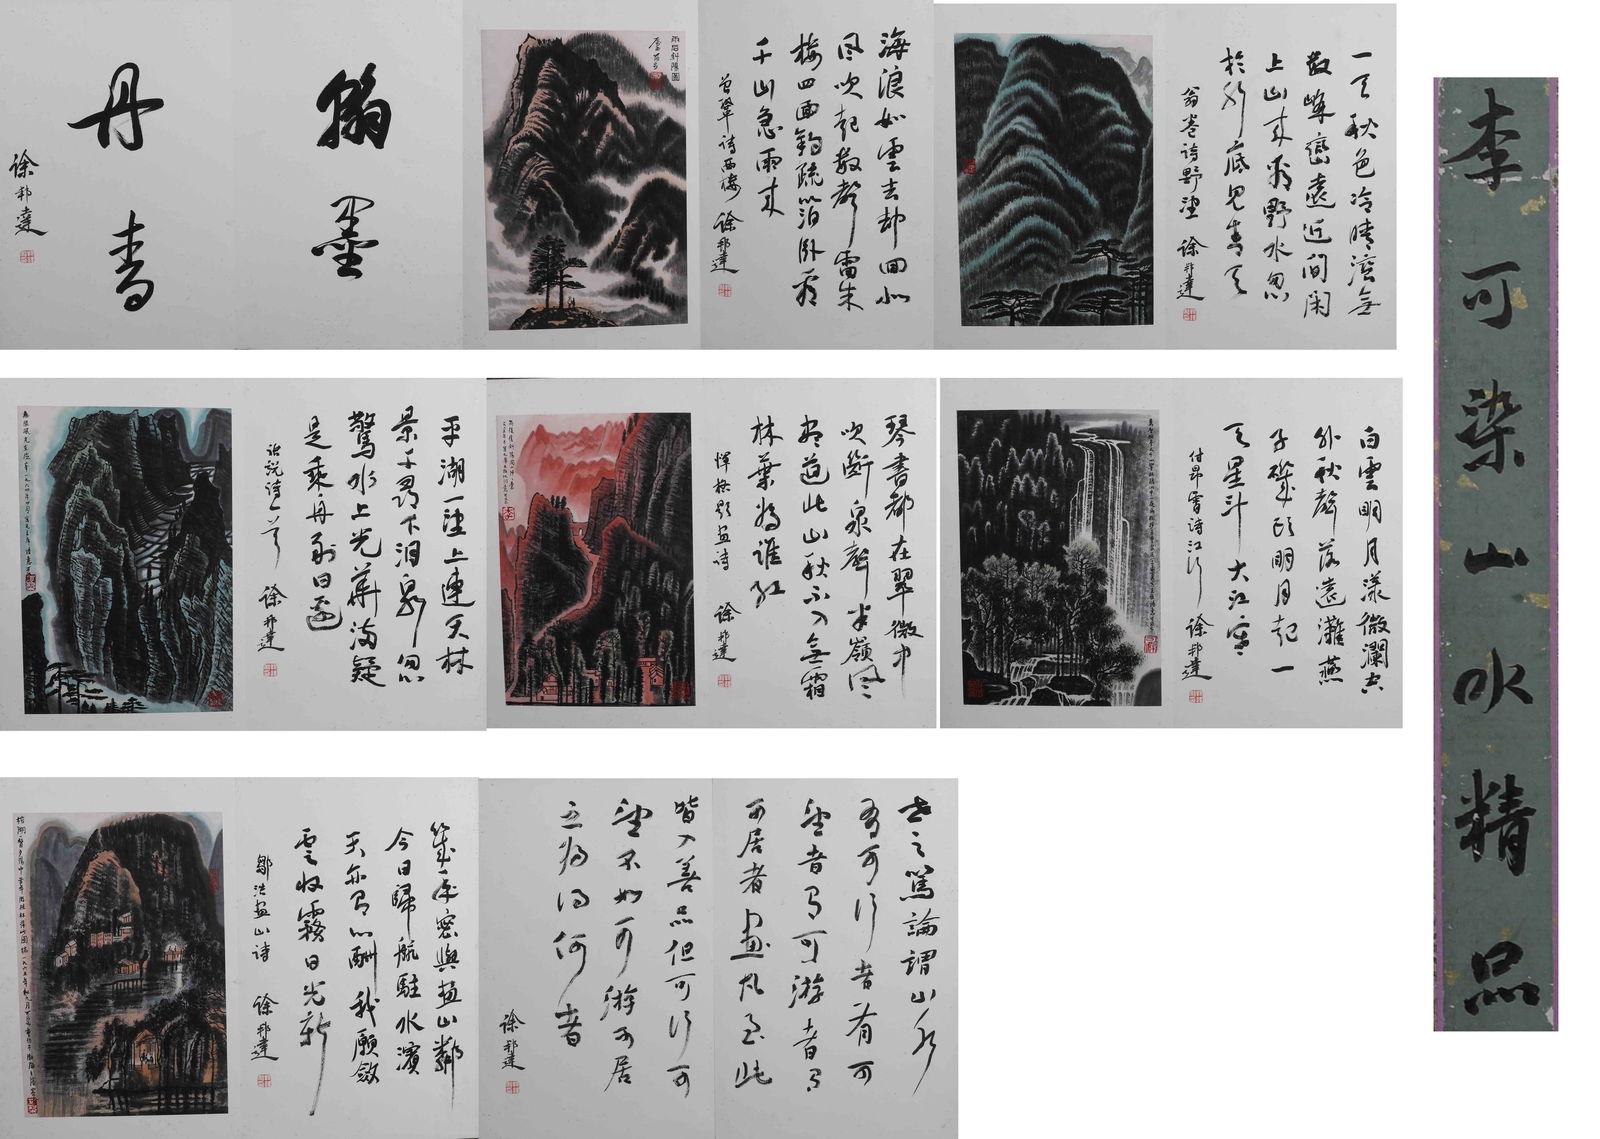 翰墨
丹青
徐邦達
雨后斜陽圖
海浪如雲去却回北
風吹起數聲雷朱
樓四面鈎疏箔卧看
千山急雨來
曾鞏詩西樓 徐邦達
一天秋色冷晴灣無
數峰巒遠近間閑
上山來看野水忽
於水底見青天
翁卷詩野望 徐邦達
平湖一望上連天林
景千尋下洞泉忽
驚水上光華滿疑
是乘舟到日邊
張説詩一首 徐邦達
琴書都在翠微中
吹斷泉聲半嶺風
盡道此山秋不入無霜
林葉為誰紅
惲格題畫詩 徐邦達
白雲明月漾微瀾六
外秋聲落遠灘燕
子磯頭明月起一
天星斗大江寒
徐邦達
幾年寢與畫山鄰
今日歸航駐水濱
天亦有心酬我願斂
雲收霧日光新
鄒浩畫山詩 徐邦達
世之篤論謂山水
有可行者有可
望者有可游者有
可居者畫凡至此
皆入妙品但可行可
望不如可游可居
之為得何者
徐邦達
李可染山水精品